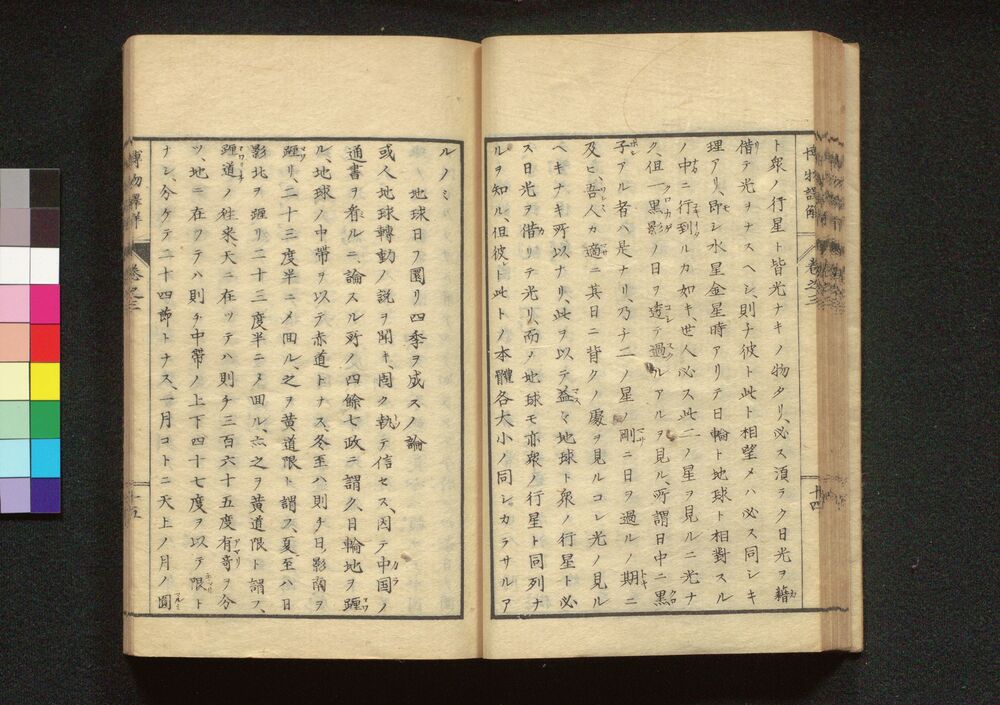 博物譯解　卷之三　十四
ト衆ノ行星ト皆光ナキノ物タリ、必ス須ラク日光ヲ藉
借テ光ヲナスヘシ、則チ彼ト此ト相望メハ必ス同シキ
理アリ、即シ水星金星時アリテ日輪ト地球ト相對スル
ノ中ニ行到ルカ如キ、世人必ス此二ノ星ヲ見ルニ光ナ
ク、但一黒影ノ日ヲ遮テ過ルアルヲ見ル、所謂日中ニ黒
子アル者ハ是ナリ、乃チ二ノ星ノ剛ニ日ヲ過ルノ期ニ
及ヒ、吾人カ適ニ其日ニ背クノ處ヲ見ルコレ光ノ見ル
ヘキナキ所以ナリ、此ヲ以テ益マ地球ト衆ノ行星ト必
ス日光ヲ借リテ光リ、而メ地球モ亦衆ノ行星ト同列ナ
ルヲ知ル、但彼ト此トノ本體各大小ノ同シカラサルア
ルノミ
地球日ヲ圜リ四季ヲ成スノ論
或人地球轉動ノ説ヲ聞キ、固ク執テ信セス、因テ中國ノ
通書ヲ看ルニ、論スル所ノ四餘七政ニ謂ク、日輪地ヲ躔
ル、地球ノ中帶ヲ以テ赤道トナス、冬至ハ則チ日影南ヲ
躔リ、二十三度半ニメ回ル、之ヲ黄道限ト謂フ、夏至ハ日
影北ヲ躔リ二十三度半ニメ回ル、亦之ヲ黄道限ト謂フ、
躔道ノ往來、天ニ在ッテハ則チ三百六十五度有奇ヲ分
ツ、地ニ在ッテハ則チ中帶ノ上下四十七度ヲ以テ限ト
ナシ、分ケテ二十四節トナス、一月コトニ天上ノ月ノ圓
博物譯解　卷之三　十五